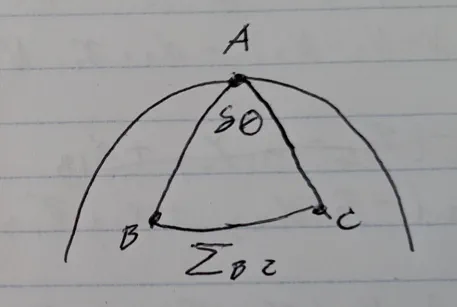 A
δθ
B
C
Σ_BC